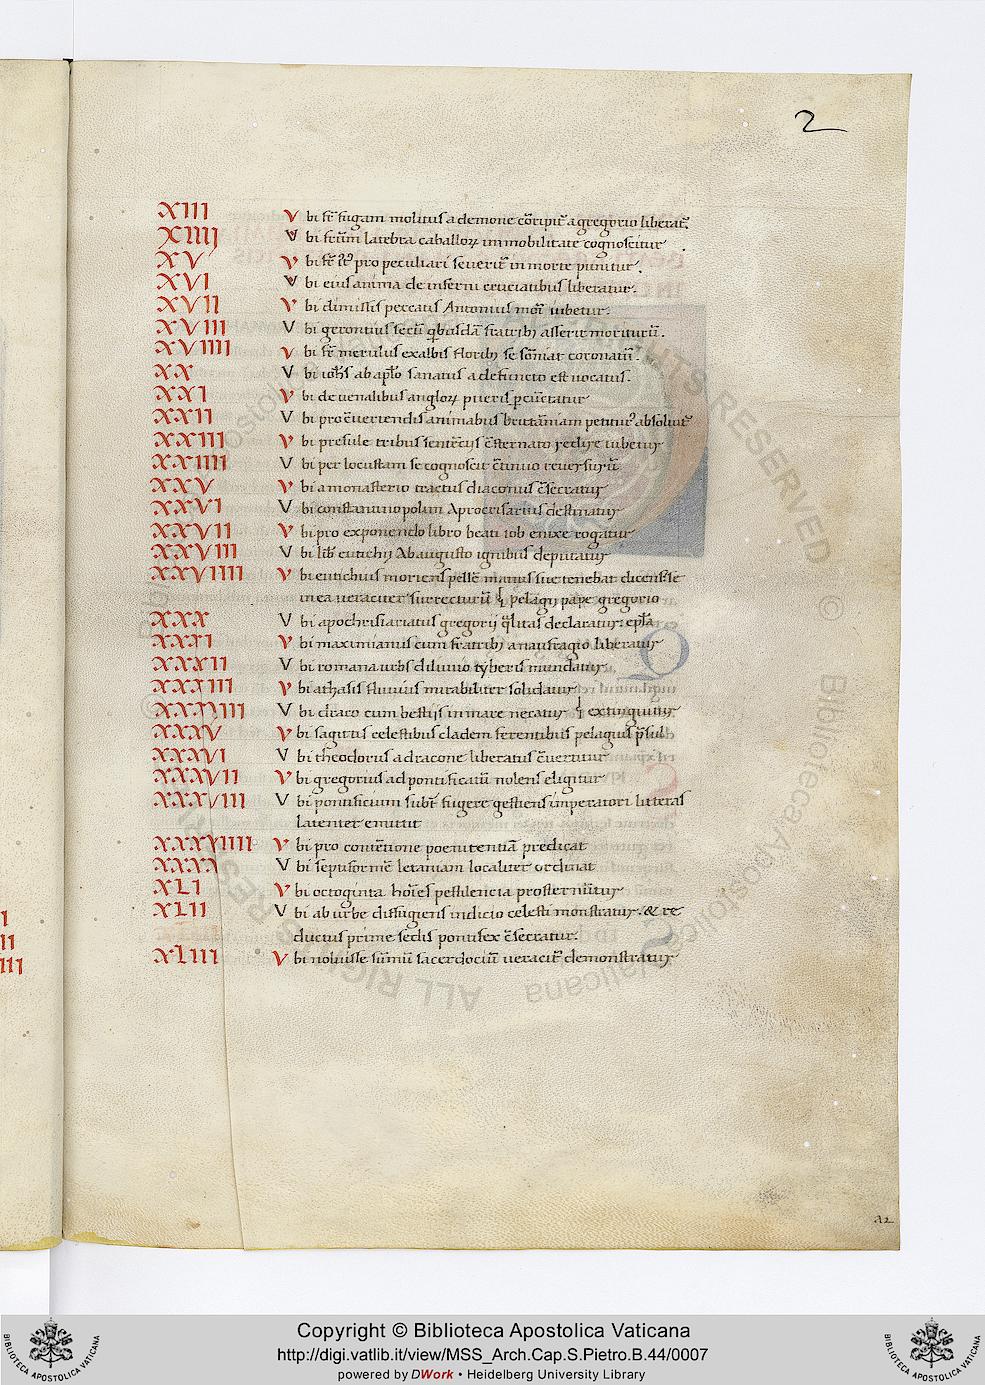 2
XIII Vbi fr̄ fugam molitus a demone cōripit᷑ a gregorio liberat᷑.
XIIII Vbi furūm latebra caballoꝝ inmobilitate cognoscitur.
XV Vbi fr̄ pro peculiari severit᷑ in morte punitur.
XVI Vbi eius anima de inferni cruciatibus liberatur.
XVII Vbi dimissis peccatis Antonius mori iubetur.
XVIII Vbi gerontius secū qbusdā fratrib; asserit moriturū.
XVIIII Vbi fr̄ merulus ex albis florib; se sōniat coronatū.
XX Vbi ioh̄s ab aplo sanatus a defuncto est vocatus.
XXI Vbi de venalibus angloꝝ pueris pcūctatur
XXII Vbi pro c̄vertendis animabus brittāniam petitur᷑ absolvit᷑
XXIII Vbi presule tribus semitis c̄sternato redire iubetur
XXIIII Vbi per locustam se cognoscit c̄tinuo reversurū
XXV Vbi a monasterio tractus diaconus c̄secratur
XXVI Vbi constantinopolim Aprocrisarius destinatur
XXVII Vbi pro exponendo libro beati iob enixe rogatur
XXVIII Vbi lib̄ euticĥ Ab augusto ignibus deputatur
XXVIIII Vbi eutichius moriens pellē manus sue tenebat dicens se
in ea veraciter surrecturū pelagii pape gregorio
XXX Vbi apochrisiariatus gregorii qlitas declaratur: epla
XXXI Vbi maximianus cum fratrib; a naufragio liberatur
XXXII Vbi romana urbs diluvio tyberis inundatur
XXXIII Vbi athasis fluvius mirabiliter solidatur
XXXIIII Vbi draco cum bestiis in mare necatur extinguitur
XXXV Vbi sagittis celestibus cladem ferentibus pelagius p̄sul
XXXVI Vbi theodorus a dracone liberatus c̄vertitur
XXXVII Vbi gregorius ad pontificatū nolens eligitur
XXXVIII Vbi pontificium subt᷑ fugere gestiens imperatori litteras
latenter emittit
XXXVIIII Vbi pro comētione poenitentiā predicat
XXXX Vbi septiformē letaniam localiter ordinat
XLI Vbi octoginta hoīes pestilencia prosternūtur
XLII Vbi ab urbe diffugiens indicio celesti monstratur. & re
ductus prime sedis pontifex c̄secratur.
XLIII Vbi noluisse sūmū sacerdociū veracit᷑ demonstratur
I
II
III
Copyright © Biblioteca Apostolica Vaticana
http://digi.vatlib.it/view/MSS_Arch.Cap.S.Pietro.B.44/0007
powered by DWork • Heidelberg University Library
BIBLIOTECA APOSTOLICA VATICANA
BIBLIOTECA APOSTOLICA VATICANA